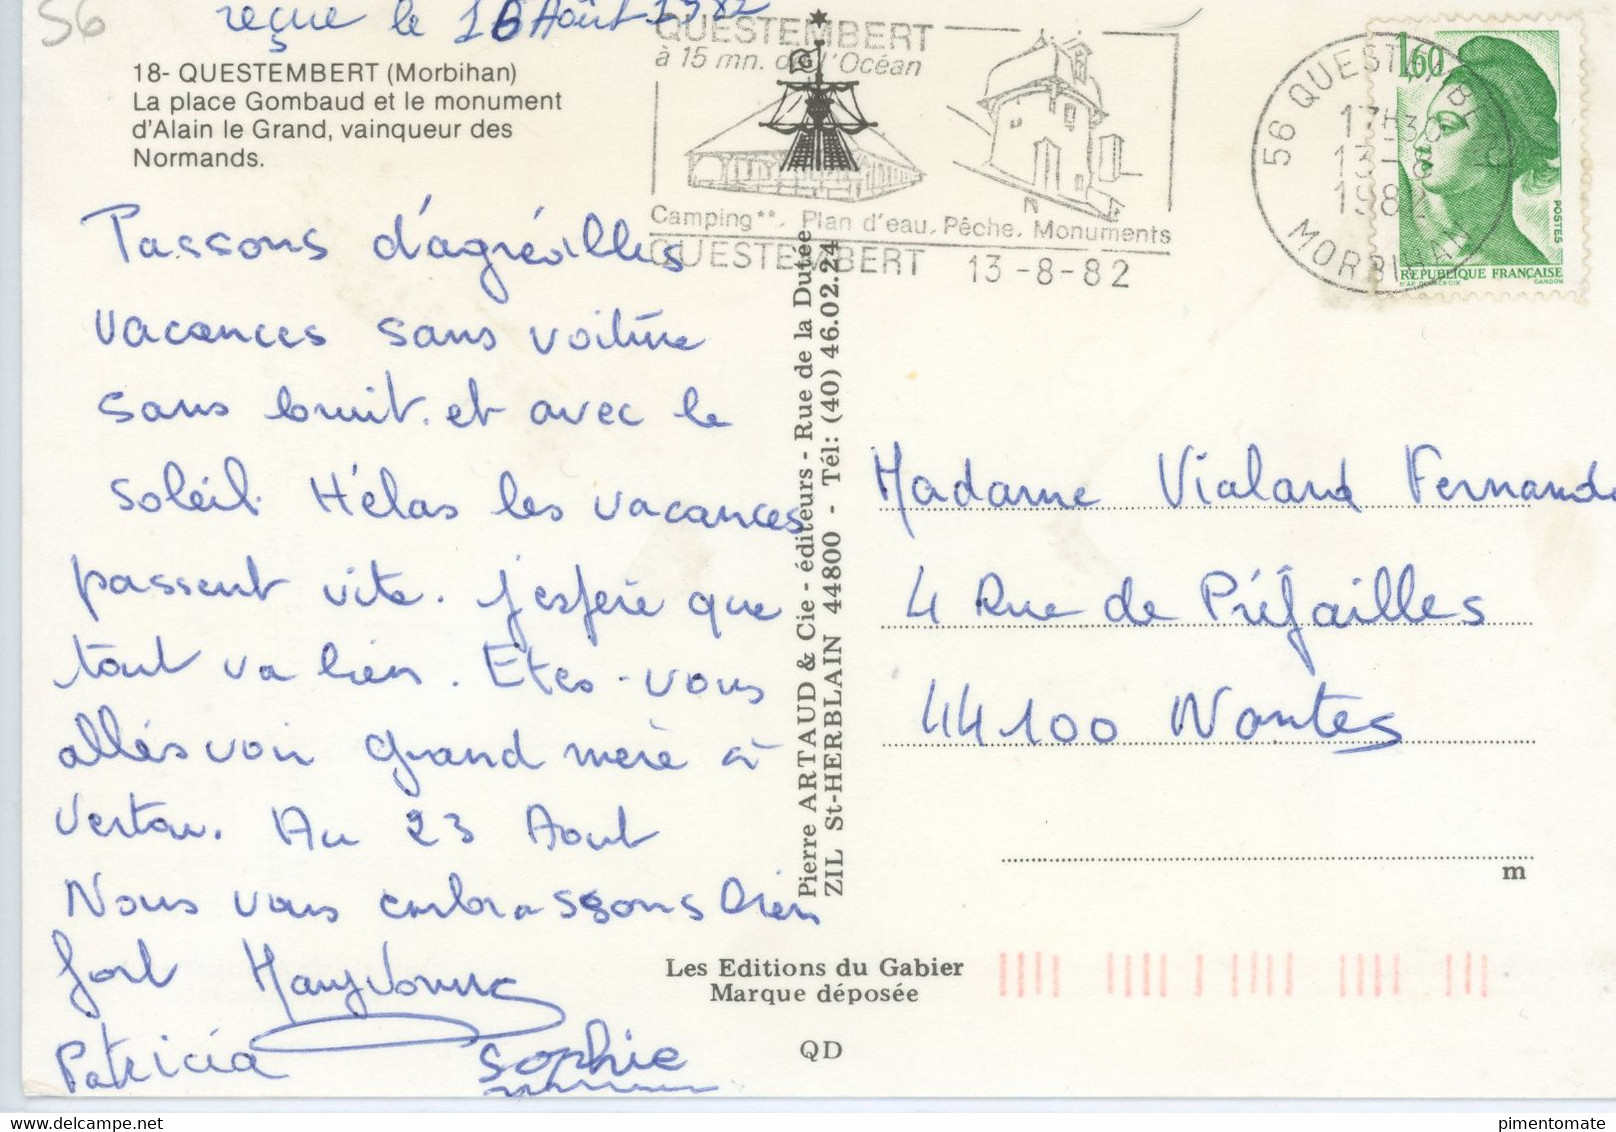 56
reçue le 16 Août 1982
18- QUESTEMBERT (Morbihan)
La place Gombaud et le monument
d'Alain le Grand, vainqueur des
Normands.
QUESTEMBERT
à 15 mn. de l'Océan
Camping**, Plan d'eau, Pêche, Monuments
QUESTEMBERT 13-8-82
56 QUESTEMBERT
17H30
13-8
1982
MORBIHAN
1,60
POSTES
REPUBLIQUE FRANÇAISE
D'AP. DELACROIX GANDON
Passons d'agréables
vacances sans voiture
sans bruit. et avec le
soleil. Hélas les vacances
passent vite. j'espère que
tout va bien. Etes-vous
allés voir grand mère à
Vertou. Au 23 Aout
Nous vous embrassons bien
fort Maryvonne
Patricia Sophie
Pierre ARTAUD & Cie - éditeurs - Rue de la Dutée
ZIL St-HERBLAIN 44800 - Tél: (40) 46.02.24
Madame Vialand Fernande
4 Rue de Préfailles
44100 Nantes
m
Les Editions du Gabier
Marque déposée
QD
pimentomate